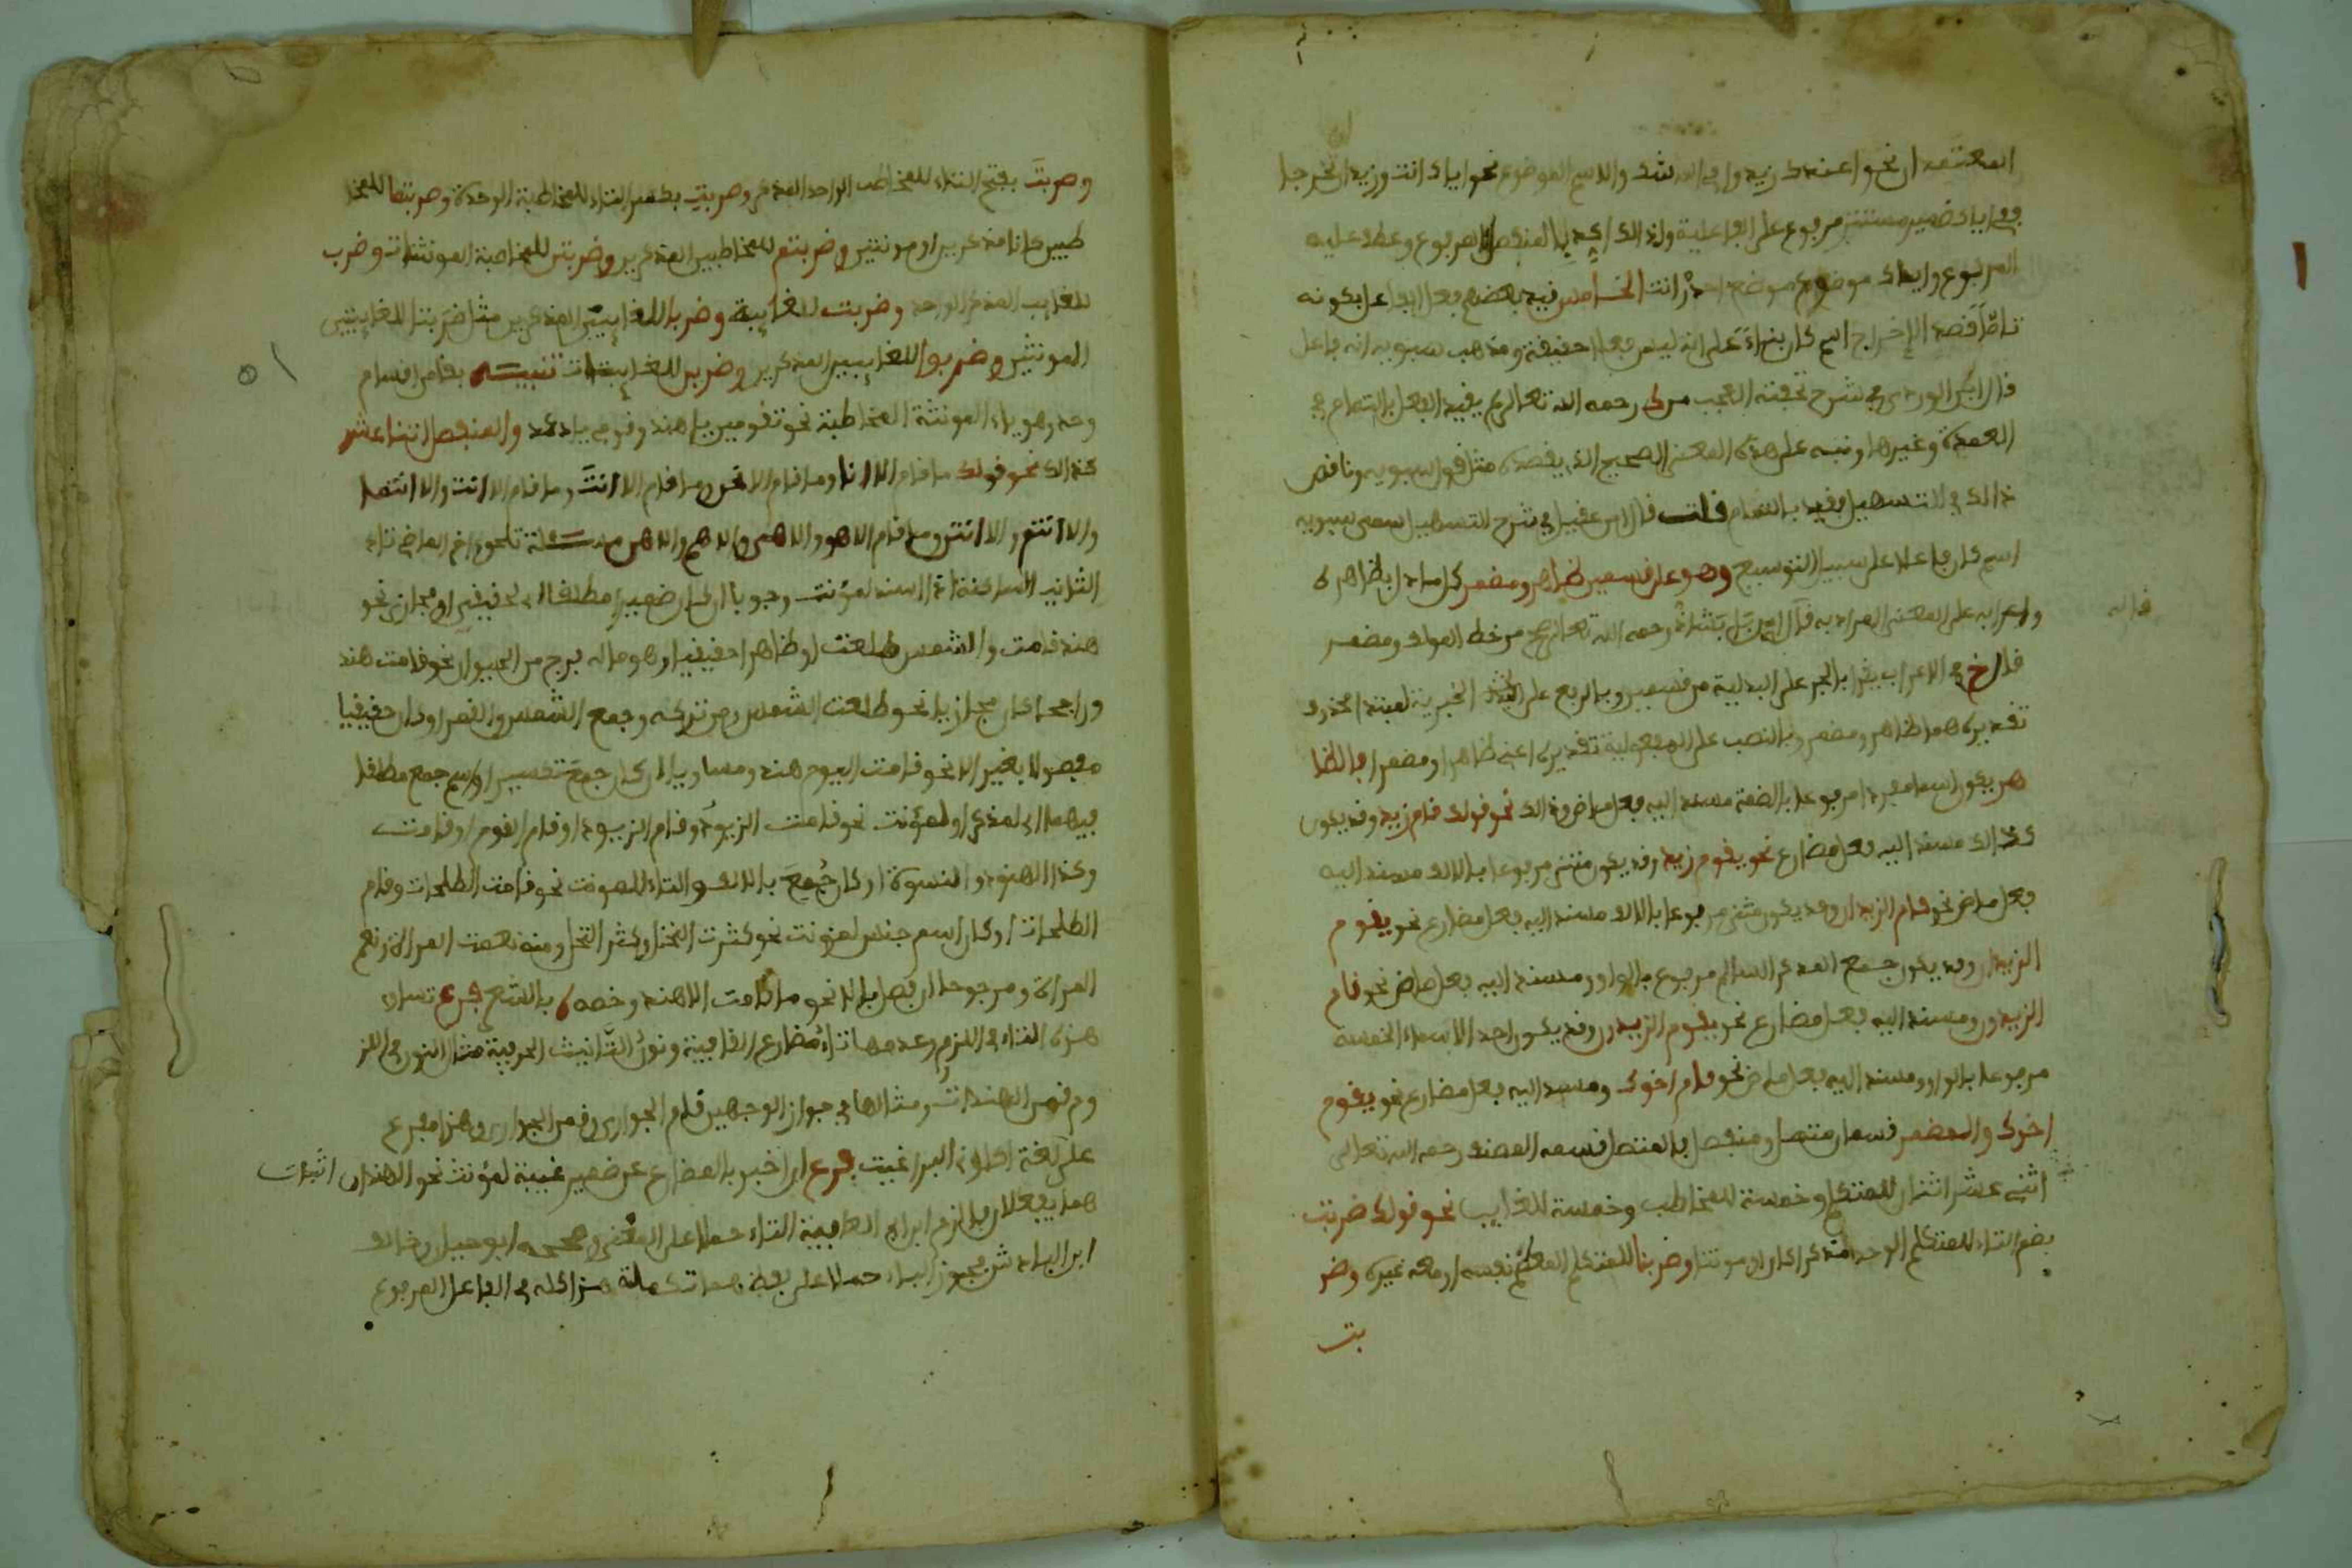 المعتمدان نحو اعندك زيد وافي الله شك والاسم الموضوع نحو اياك انت وزيد ان تخرجا
ففي اياك ضمير مستتر مرفوع على الفاعلية ولذالك اكد بالمنفصل المرفوع وعطف عليه
المرفوع واياك موضوع موضع احذر انت الخامس قيد بعضهم فعل الفاعل بكونه
تاما قصد الاخراج اسم كان بناء على انه ليس فاعلا حقيقة ومذهب سيبويه انه فاعل
قال ابن الوردي في شرح تحفته العجب من رحمه الله تعالى يقيد الفعل بالتمام في
العمدة وغيرها ونبه على هذه المعنى الصحيح الذي يقصده مثل قول سيبويه وناقض
ذالك في التسهيل فقيد بالتمام قلت قال ابن عقيل في شرح التسهيل سمى سيبويه
اسم كان فاعلا على سبيل التوسع وهو على قسمين ظاهر ومضمر كل مادل بظاهره
واعرابه على المعنى المراد به قال رحمه الله تعالى صح من خط المولف ومضمر
قال خ في الاعراب يقرا بالجر على البدلية من قسمين وبالرفع على الخبرية لمبتدا محذوف
تقديره هما ظاهر ومضمر وبالنصب على المفعولية تقديره اعني ظاهرا ومضمرا فالظا
هر يكون اسما مفردا مرفوعا بالضمة مسند اليه فعل ماض وذالك نحو قولك قام زيد وقد يكون
كذالك مسند اليه فعل مضارع نحو يقوم زيد وقد يكون مثنى مرفوعا بالالف مسند اليه
فعل ماض نحو قام الزيدان وقد يكون مثنى مرفوعا بالالف مسند اليه فعل مضارع نحو يقوم
الزيدان وقد يكون جمع المذكر السالم مرفوع بالواو ومسند اليه فعل ماض نحو قام
الزيدون ومسند اليه فعل مضارع نحو يقوم الزيدون وقد يكون احد الاسماء الخمسة
مرفوعا بالواو ومسند اليه فعل ماض نحو قام اخوك ومسند اليه فعل مضارع نحو يقوم
اخوك والمضمر قسمان متصل ومنفصل فالمتصل قسمه المصنف رحمه الله تعالى
اثني عشر اثنان للمتكلم وخمسة للمخاطب وخمسة للغايب نحو قولك ضربت
بضم التاء للمتكلم الواحد مذكرا كان او مونثا وضربنا للمتكلم المعظم نفسه او معه غيره وضر
بت
قاله
وضربت بفتح التاء للمخاطب الواحد المذكر وضربت بكسر التاء للمخاطبة الوحدة وضربتما للمخا
طبين كانا مذكرين او مونثين وضربتم للمخاطبين المذكرين وضربتن للمخاطبة المونثات وضرب
للغايب المذكر الواحد وضربت للغايبة وضربا للغايبين المذكرين مثل ضربتا للغايبتين
المونثين وضربوا للغايبين المذكرين وضربن للغايبات تنبيه بقي من اقسام
وحده وهو ياء المونثة المخاطبة نحو تقومين يا هند وقومي يا دعد والمنفصل اثنا عشر
كذالك نحو قولك ما قام الا انا وما قام الا نحن وما قام الا انت وما قام الا انت والا انتما
والا انتم والا انتن وما قام الا هو والا هي والا هم والا هن مسئلة تلحق اخر الماضي تاء
التانيث الساكنة اذا اسند لمؤنث وجوبا ان كان ضميرا مطلقا اي لحقيقي او مجازي نحو
هند قامت والشمس طلعت او ظاهرا حقيقيا وهو ما له فرج من الحيوان نحو قامت هند
وراجحا كان مجازيا نحو طلعت الشمس ومن تركه وجمع الشمس والقمر او كان حقيقيا
مفصولا بغير الا نحو قامت اليوم هند ومساويا ان كان جمع تكسير او اسم جمع مطلقا
فيهما اي لمذكر او لمؤنث نحو قامت الزيود وقام الزيود او قام القوم او قامت
وكذا الهنود والنسوة او كان جمع بالالف والتاء للمونث نحو قامت الطلحات وقام
الطلحات او كان اسم جنس لمؤنث نحو كثرت النخل وكثر النخل ومنه نعمت المراة ونعم
المراة ومرجوحا ان فصل بالا نحو ما قامت الا هند وخصه بالشعر فرع تساوي
هذه التاء في اللزوم وعدمها تاء مضارع الغايبة ونون التانيث الحرفية مثل النون في اللز
وم قمن الهندات ومثالها في جواز الوجهين قام الجواري وقمن الجواري وهذا مفرع
على لغة اكلوني البراغيث فرع ان اخبر بالمضارع عن ضمير غيبة لمؤنث نحو الهندان
اثبات
هما يفعلان فالزم ابن ابي العافية التاء حملا على المعنى وصححه ابو حيان وخالف
ابن الباذش فجوز الياء حملا على لفظ هما تكملة هذا كله في الفاعل المرفوع